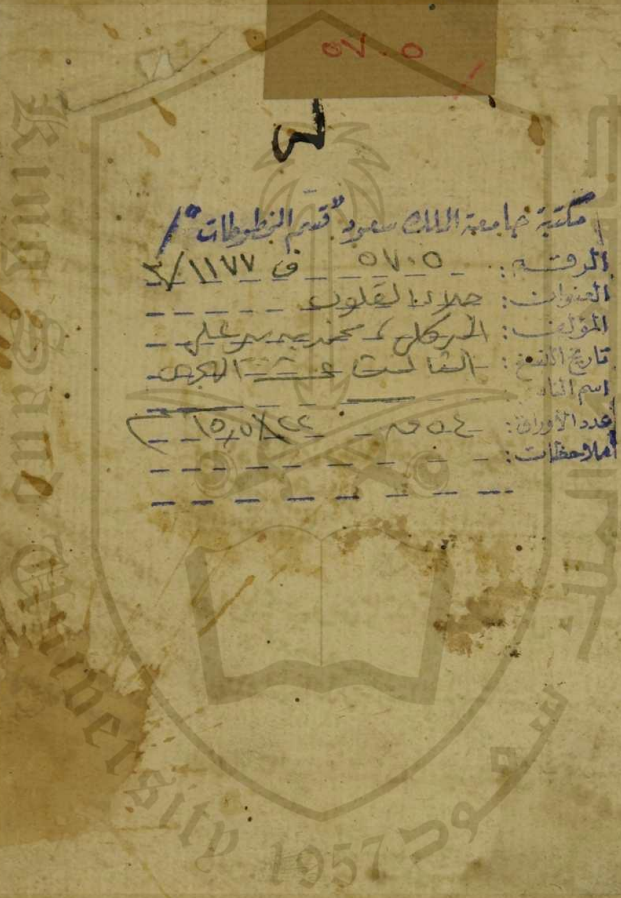 ٥٧٠٥
٤
مكتبة جامعة الملك سعود "قسم المخطوطات"
الرقم: ٥٧٠٥ ف ١١٧٧/٢
العنوان: جلاء القلوب
المؤلف: البركلي، محمد بن بير علي
تاريخ النسخ: الثالث عشر الهجري
اسم الناسخ:
عدد الأوراق: ٥٤ ق ٢٢×١٥٫٥
ملاحظات:
King Saud University 1957
سعود